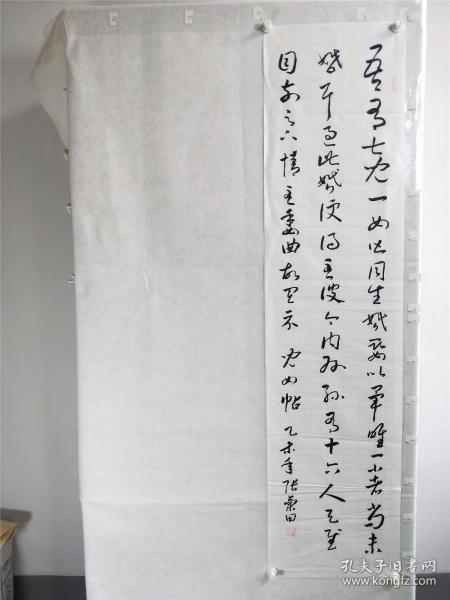 吾有七儿一女皆同生婚娶以毕唯一小者尚未
婚耳过此婚便得至彼今内外孙有十六人足慰
目前足下情至委曲故具示 儿女帖 乙未年张
孔夫子旧书网
www.kongfz.com